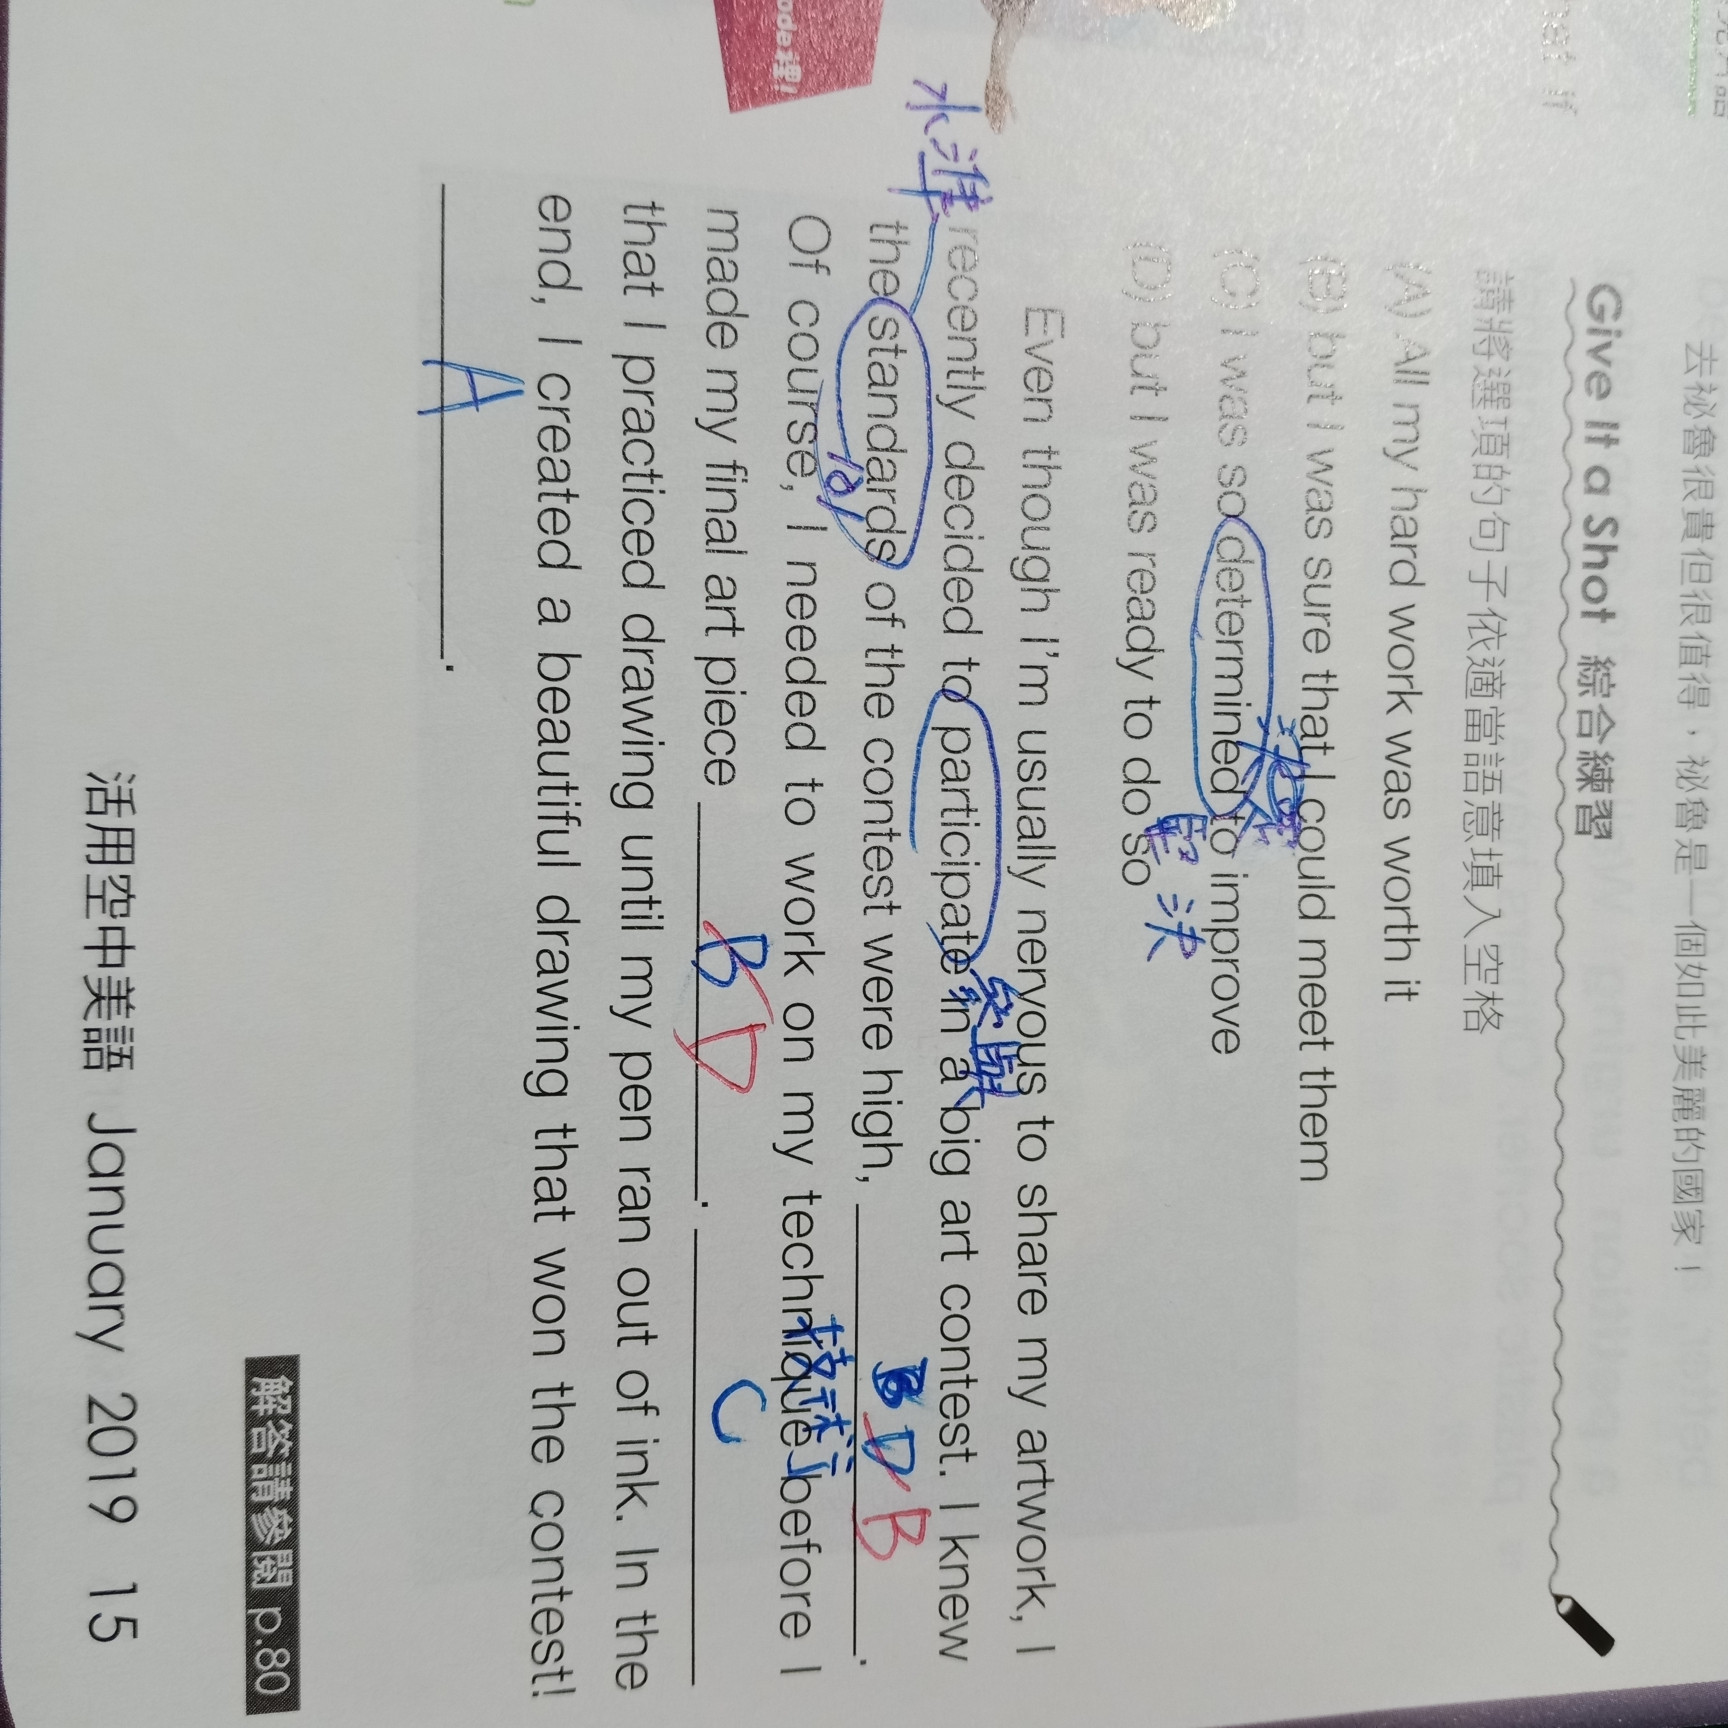 去祕魯很貴但很值得，祕魯是一個如此美麗的國家！
Give It a Shot 綜合練習
請將選項的句子依適當語意填入空格
(A) All my hard work was worth it
(B) but I was sure that I could meet them
(C) I was so determined to improve
堅決
(D) but I was ready to do so
Even though I'm usually nervous to share my artwork, I
參與
水準
recently decided to participate in a big art contest. I knew
the standards of the contest were high, B D B.
技術
Of course, I needed to work on my technique before I
made my final art piece B D. C
that I practiced drawing until my pen ran out of ink. In the
end, I created a beautiful drawing that won the contest!
A.
解答請參閱 p.80
活用空中美語 January 2019 15